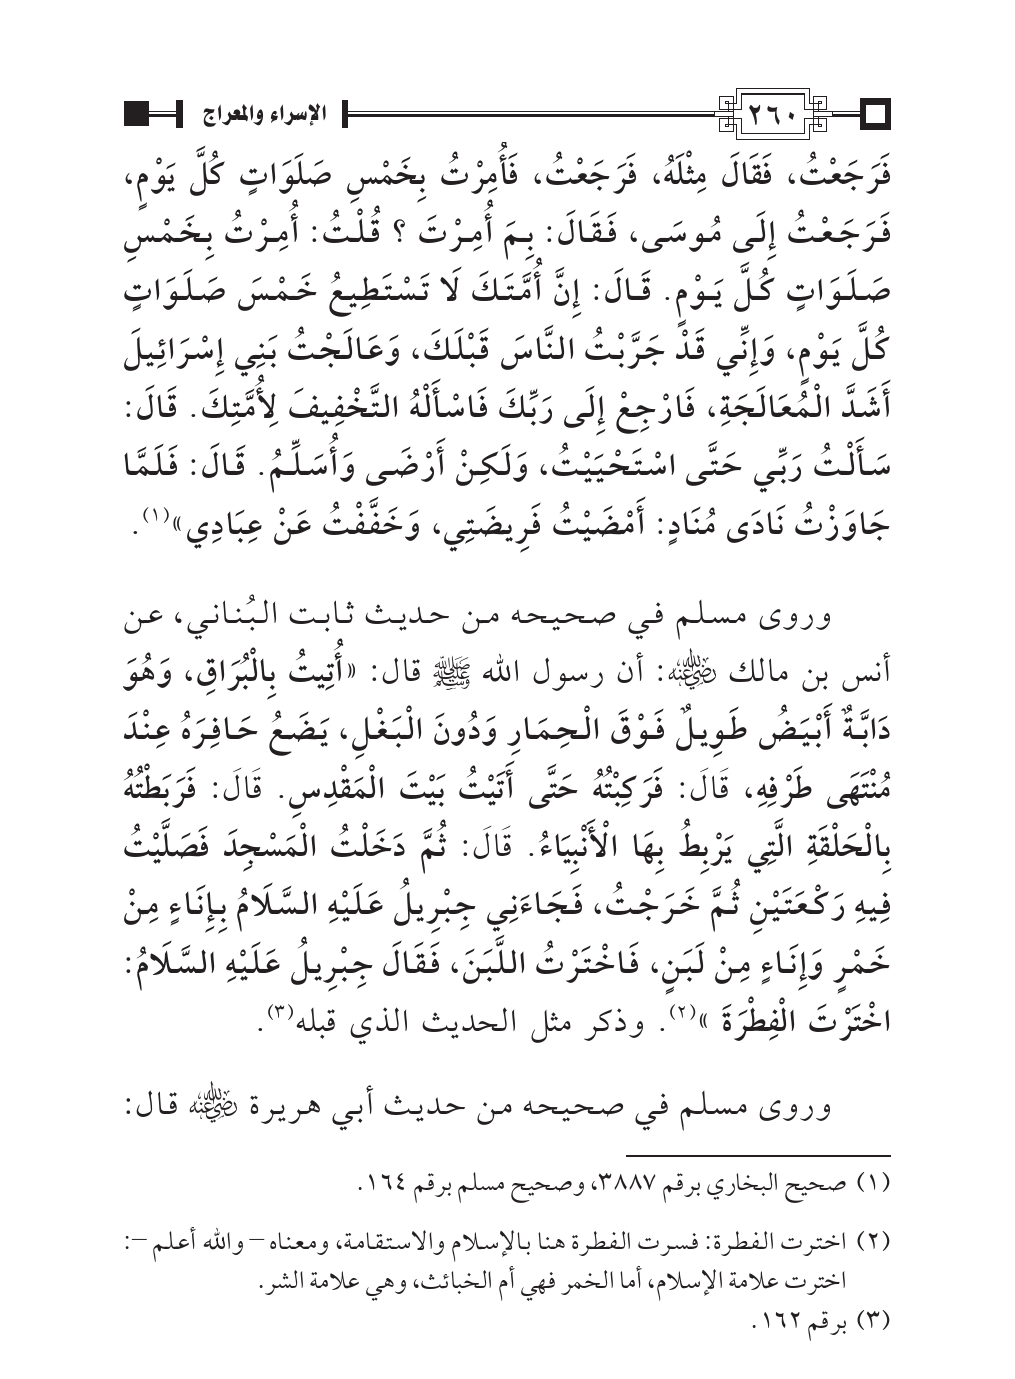 ٢٦٠ الإسراء والمعراج
فَرَجَعْتُ، فَقَالَ مِثْلَهُ، فَرَجَعْتُ، فَأُمِرْتُ بِخَمْسِ صَلَوَاتٍ كُلَّ يَوْمٍ،
فَرَجَعْتُ إِلَى مُوسَى، فَقَالَ: بِمَ أُمِرْتَ ؟ قُلْتُ: أُمِرْتُ بِخَمْسِ
صَلَوَاتٍ كُلَّ يَوْمٍ. قَالَ: إِنَّ أُمَّتَكَ لَا تَسْتَطِيعُ خَمْسَ صَلَوَاتٍ
كُلَّ يَوْمٍ، وَإِنِّي قَدْ جَرَّبْتُ النَّاسَ قَبْلَكَ، وَعَالَجْتُ بَنِي إِسْرَائِيلَ
أَشَدَّ الْمُعَالَجَةِ، فَارْجِعْ إِلَى رَبِّكَ فَاسْأَلْهُ التَّخْفِيفَ لِأُمَّتِكَ. قَالَ:
سَأَلْتُ رَبِّي حَتَّى اسْتَحْيَيْتُ، وَلَكِنْ أَرْضَى وَأُسَلِّمُ. قَالَ: فَلَمَّا
جَاوَزْتُ نَادَى مُنَادٍ: أَمْضَيْتُ فَرِيضَتِي، وَخَفَّفْتُ عَنْ عِبَادِي»(١).
وروى مسلم في صحيحه من حديث ثابت البُناني، عن
أنس بن مالك رضي الله عنه: أن رسول الله ﷺ قال: «أُتِيتُ بِالْبُرَاقِ، وَهُوَ
دَابَّةٌ أَبْيَضُ طَوِيلٌ فَوْقَ الْحِمَارِ وَدُونَ الْبَغْلِ، يَضَعُ حَافِرَهُ عِنْدَ
مُنْتَهَى طَرْفِهِ، قَالَ: فَرَكِبْتُهُ حَتَّى أَتَيْتُ بَيْتَ الْمَقْدِسِ. قَالَ: فَرَبَطْتُهُ
بِالْحَلْقَةِ الَّتِي يَرْبِطُ بِهَا الْأَنْبِيَاءُ. قَالَ: ثُمَّ دَخَلْتُ الْمَسْجِدَ فَصَلَّيْتُ
فِيهِ رَكْعَتَيْنِ ثُمَّ خَرَجْتُ، فَجَاءَنِي جِبْرِيلُ عَلَيْهِ السَّلَامُ بِإِنَاءٍ مِنْ
خَمْرٍ وَإِنَاءٍ مِنْ لَبَنٍ، فَاخْتَرْتُ اللَّبَنَ، فَقَالَ جِبْرِيلُ عَلَيْهِ السَّلَامُ:
اخْتَرْتَ الْفِطْرَةَ »(٢). وذكر مثل الحديث الذي قبله(٣).
وروى مسلم في صحيحه من حديث أبي هريرة رضي الله عنه قال:
(١) صحيح البخاري برقم ٣٨٨٧، وصحيح مسلم برقم ١٦٤.
(٢) اخترت الفطرة: فسرت الفطرة هنا بالإسلام والاستقامة، ومعناه – والله أعلم –:
اخترت علامة الإسلام، أما الخمر فهي أم الخبائث، وهي علامة الشر.
(٣) برقم ١٦٢.